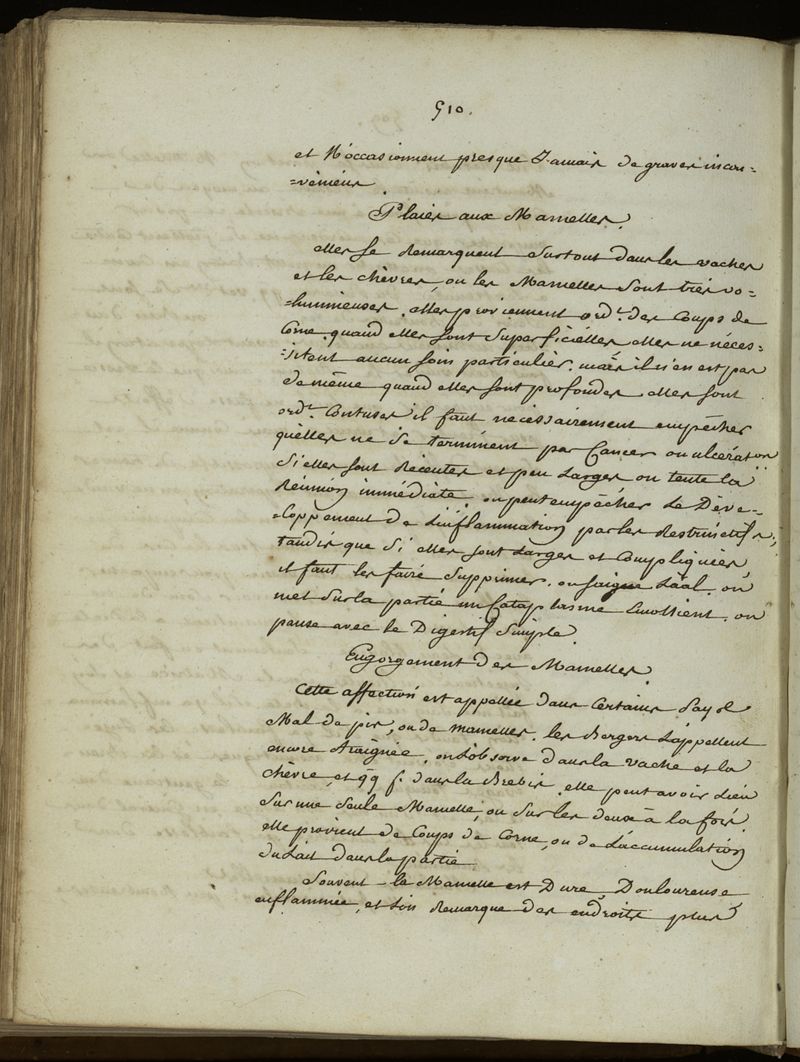 510.
et N'occasionnent presque Jamais de graves incon-
-véniens.
Plaies aux Mamelles.
elles se Remarquent surtout dans les vaches
et les chèvres, ou les Mamelles sont très vo-
-lumineuses. elles proviennent ord.t des Coups de
Corne. quand elles sont superficielles elles ne néces-
-sitent aucun soin particulier. mais il n'en est pas
de même quand elles sont profondes. elles sont
ord.t Contuses il faut nécessairement empêcher
qu'elles ne se terminent par Cancer ou ulcération
Si elles sont Récentes et peu Larges on tente la
Réunion immédiate. on peut empêcher Le Déve-
-loppement de L'inflammation par les Restrinctifs,
tandis que Si elles sont Larges et Compliquées,
il faut les faire Suppurer. on saigne L'a.al on
met sur la partie un Cataplasme Emollient. on
panse avec le Digestif Simple.
Engorgement des Mamelles.
Cette affection est appellée dans Certains Pays
Mal de pis, ou de mamelles. les Bergers L'appellent
encore Araignée. on L'observe dans la vache et la
chèvre, et qq f. dans la Brebis. elle peut avoir Lieu
Sur une Seule Mamelle, ou Sur les deux à la fois.
elle provient de Coups de Corne, ou de L'accumulation
du Lait dans la partie.
Souvent la Mamelle est Dure, Douloureuse
enflammée, et L'on Remarque des endroits plus